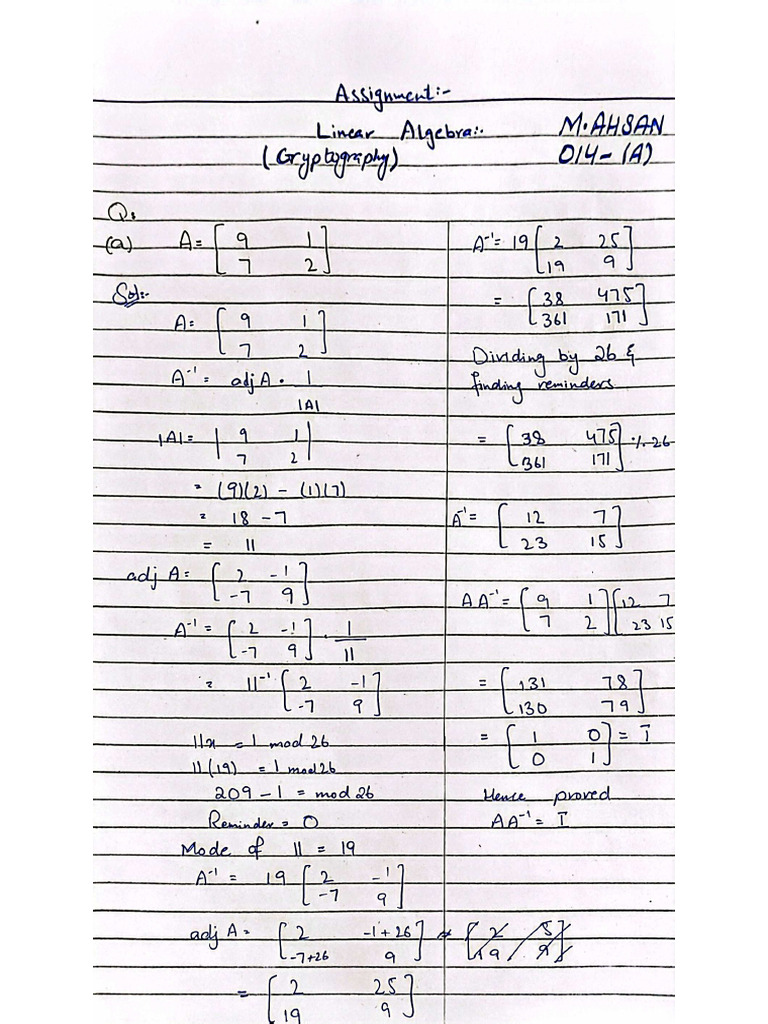 Assignment:-
Linear Algebra:.
M.AHSAN
(Cryptography)
014-(A)
Q:
(a) A= [ 9 1
7 2 ]
Sol:-
A= [ 9 1
7 2 ]
A⁻¹ = adj A . 1
|A|
|A|= | 9 1 |
7 2
= (9)(2) - (1)(7)
= 18 - 7
= 11
adj A= [ 2 -1
-7 9 ]
A⁻¹ = [ 2 -1
-7 9 ] . 1
11
= 11⁻¹ [ 2 -1
-7 9 ]
11x = 1 mod 26
11(19) = 1 mod 26
209 - 1 = mod 26
Reminder = 0
Mode of 11 = 19
A⁻¹ = 19 [ 2 -1
-7 9 ]
adj A= [ 2 -1+26
-7+26 9 ]
= [ 2 25
19 9 ]
A⁻¹= 19 [ 2 25
19 9 ]
= [ 38 475
361 171 ]
Dividing by 26 &
finding reminders
= [ 38 475
361 171 ] % 26
A⁻¹= [ 12 7
23 15 ]
AA⁻¹= [ 9 1
7 2 ] [ 12 7
23 15
= [ 131 78
130 79 ]
= [ 1 0
0 1 ] = I
Hence proved
AA⁻¹= I